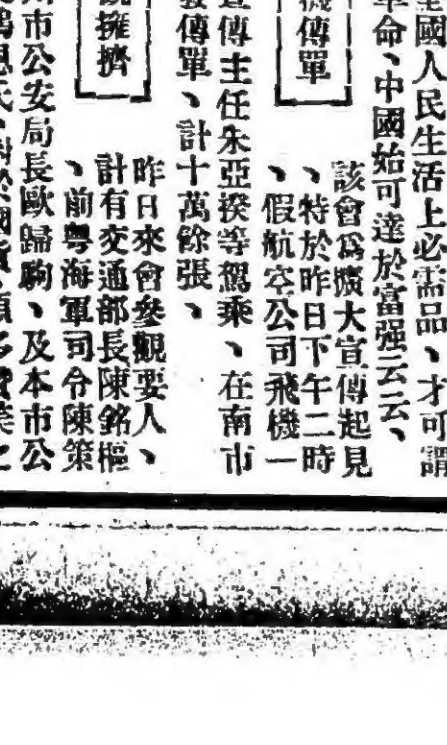 國人民生活上必需品、才可謂
革命、中國始可達於富强云云、
機傳單
該會爲擴大宣傳起見
、特於昨日下午二時
、假航空公司飛機一
宣傳主任朱亞揆等駕乘、在南市
發傳單、計十萬餘張、
擁擠
昨日來會參觀要人、
計有交通部長陳銘樞
、前粤海軍司令陳策
市公安局長歐歸駒、及本市公